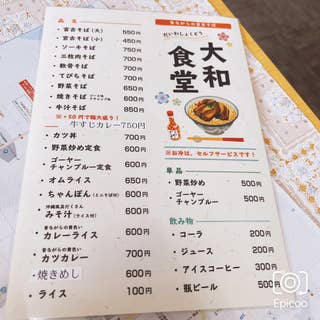 品名
・宮古そば(大) 550円
・宮古そば(小) 450円
・ソーキそば 750円
・三枚肉そば 700円
・軟骨そば 700円
・てびちそば 750円
・野菜そば 650円
・焼きそば 600円
・牛汁そば 850円
※+50円で麺大盛り!
牛すじカレー750円
・カツ丼 700円
・野菜炒め定食 600円
・ゴーヤーチャンプルー定食 600円
・オムライス 650円
・ちゃんぽん(ミニそば付) 650円
沖縄風具だくさん
・みそ汁(ライス付) 600円
昔ながらの黄色い
・カレーライス 600円
昔ながらの黄色い
・カツカレー 700円
・焼きめし 600円
・ライス 100円
昔ながらの宮古そば
だいわしょくどう
大和食堂
※お冷は、セルフサービスです!
単品
・野菜炒め 500円
・ゴーヤーチャンプルー 500円
飲み物
・コーラ 200円
・ジュース 200円
・アイスコーヒー 300円
・瓶ビール 500円
Epicoo